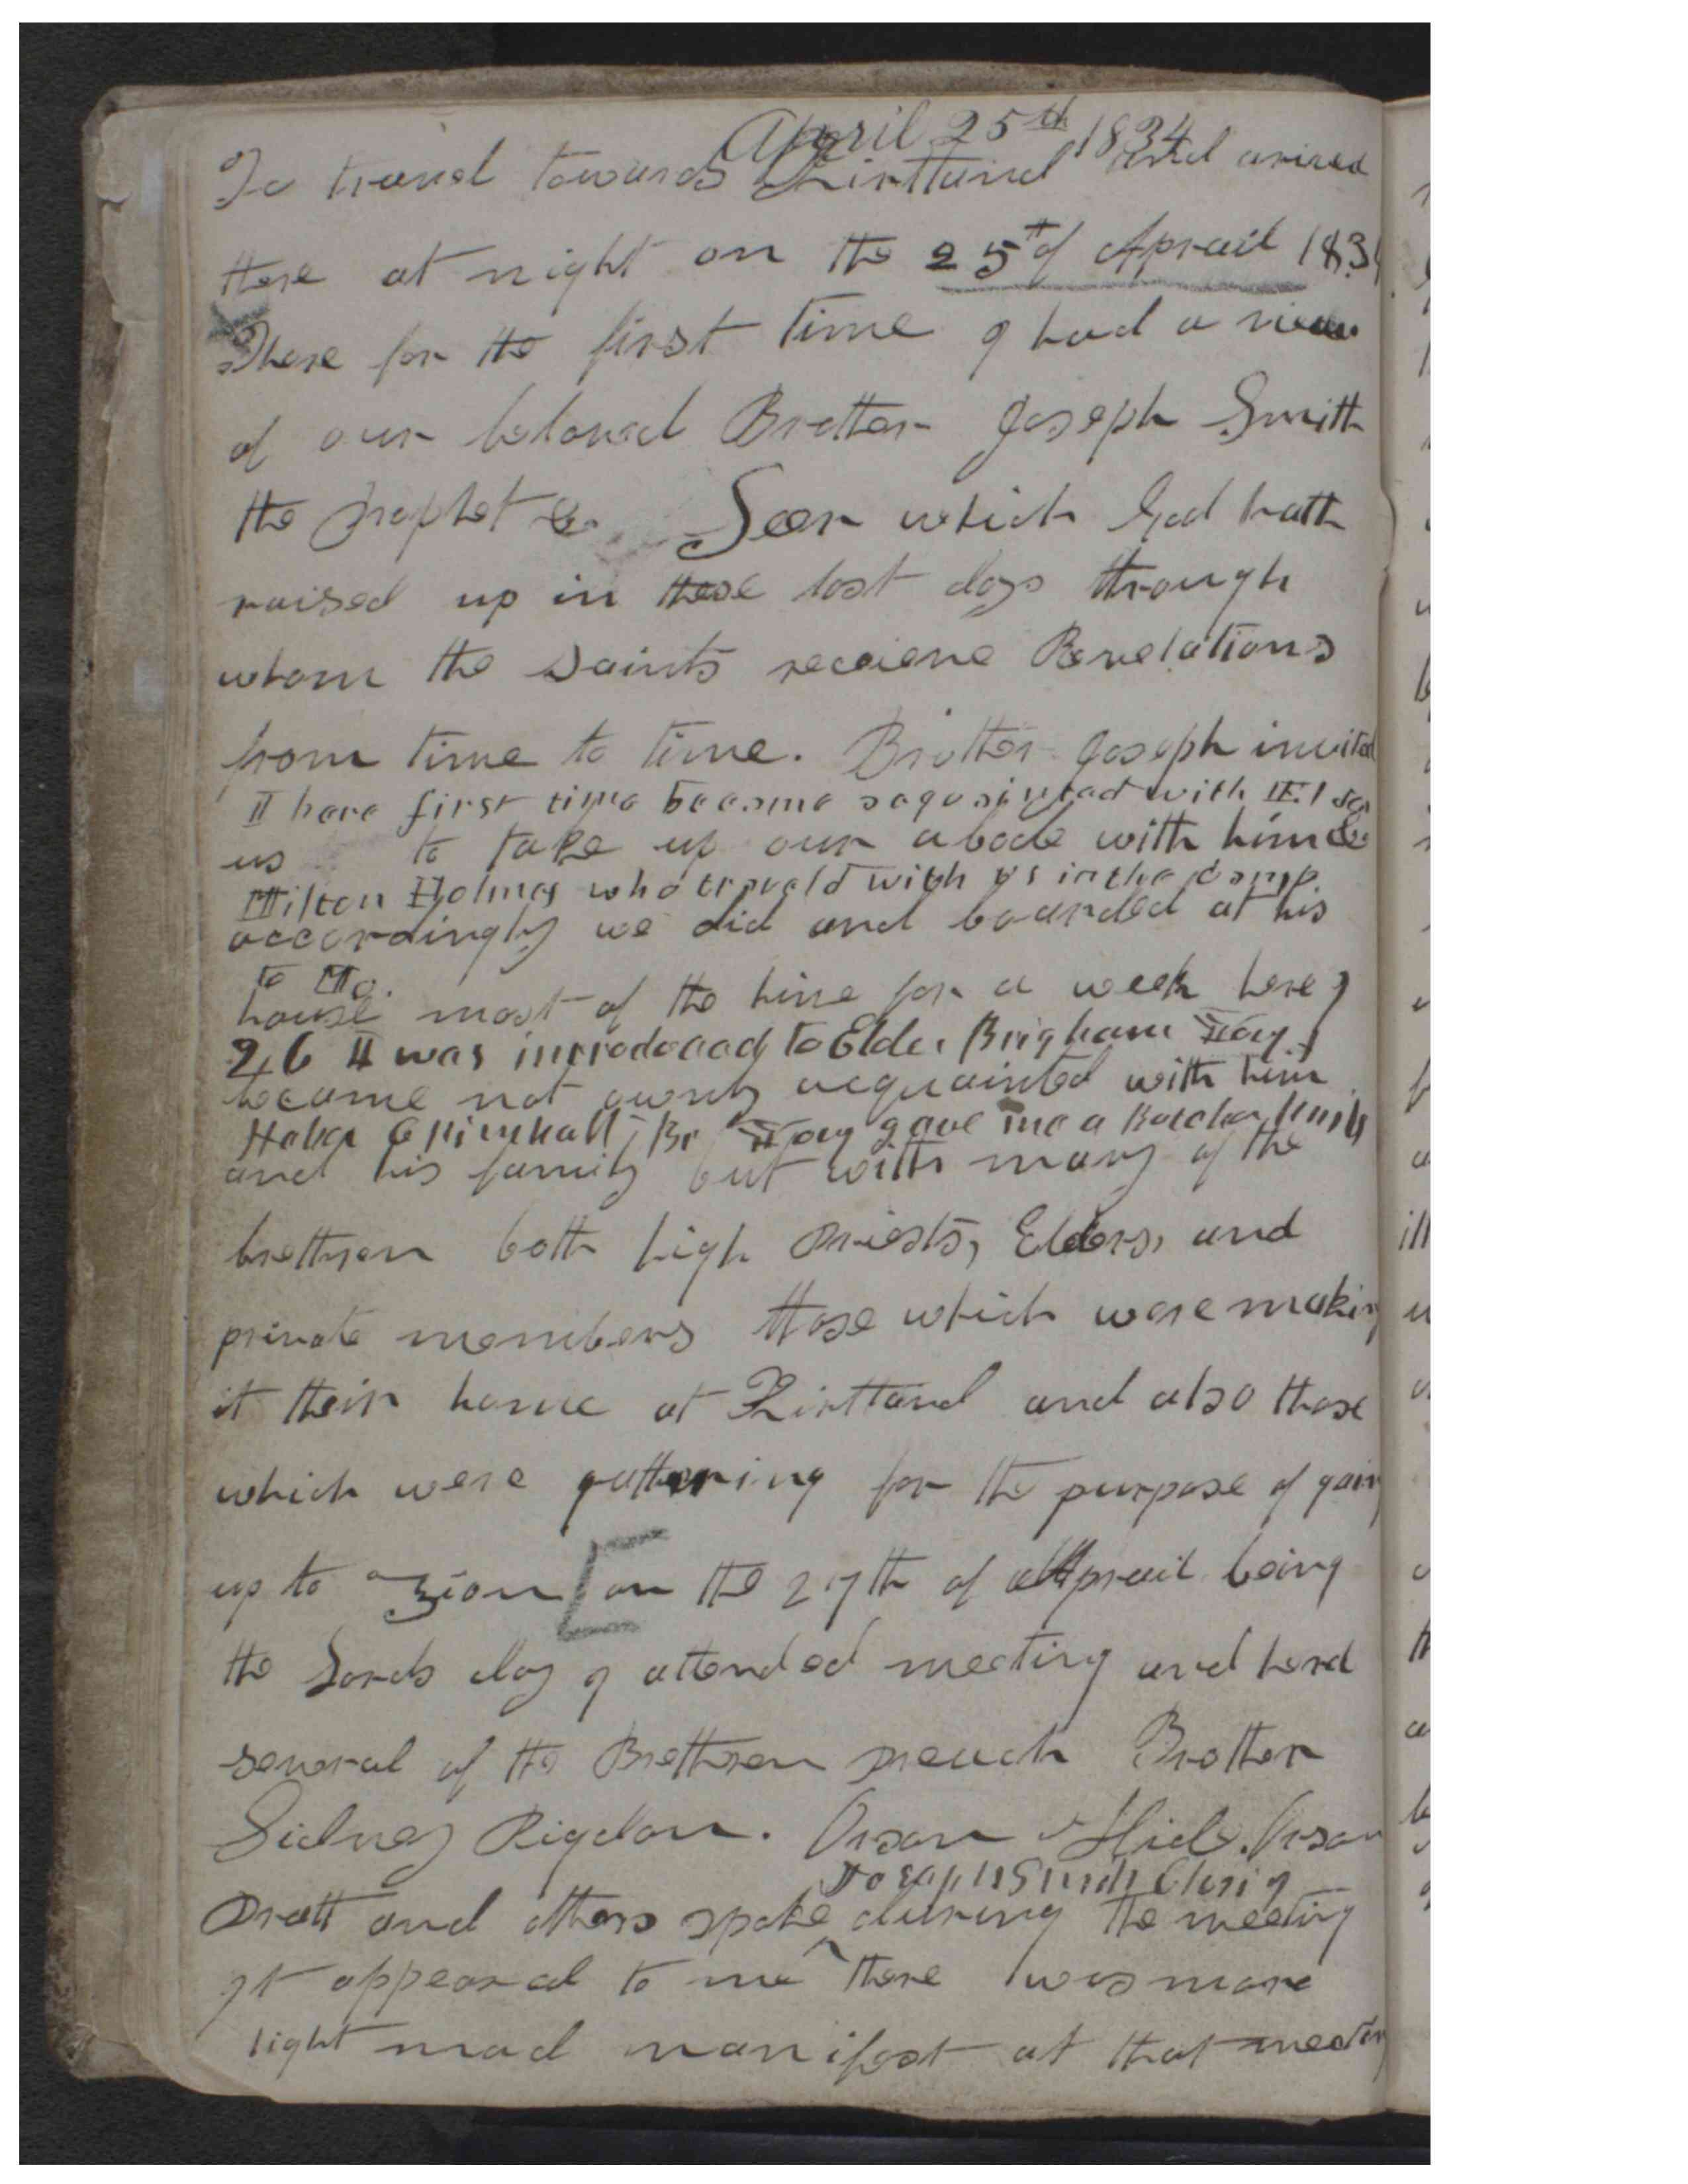 April 25th 1834
To travel towards Kirttand and arived
there at night on the 25th of Aprail 1834
There for the first time I had a view
of our beloved Brother Joseph Smith
the prophet & Seer which God hath
raised up in these last days through
whom the Saints receieve Revelations
from time to time. Brother Joseph invited
I here first time became acquainted with
us to take up our abode with him &
Milton Holmes who traveld with us in the camp
accordingly we did and boarded at his
to Mo.
house most of the time for a week here I
26 I was introdoced to Elder Brigham Young
became not ownly acquainted with him
Heber C Kimball, Br Young gave me a Butcher knife
and his family but with many of the
brethren both high Priests, Elders, and
private members those which were making
it their home at Kirttand and also those
which were gathering for the purpose of going
up to Zion [on the 27th of Aprail being
the Lords day I attended meeting and herd
several of the Brethren preach Brother
Sidney Rigdon. Orson Hide. Orson
Joseph Smith Closing
Pratt and others spoke during the meeting
It appeared to me there was more
light mad manifest at that meeting